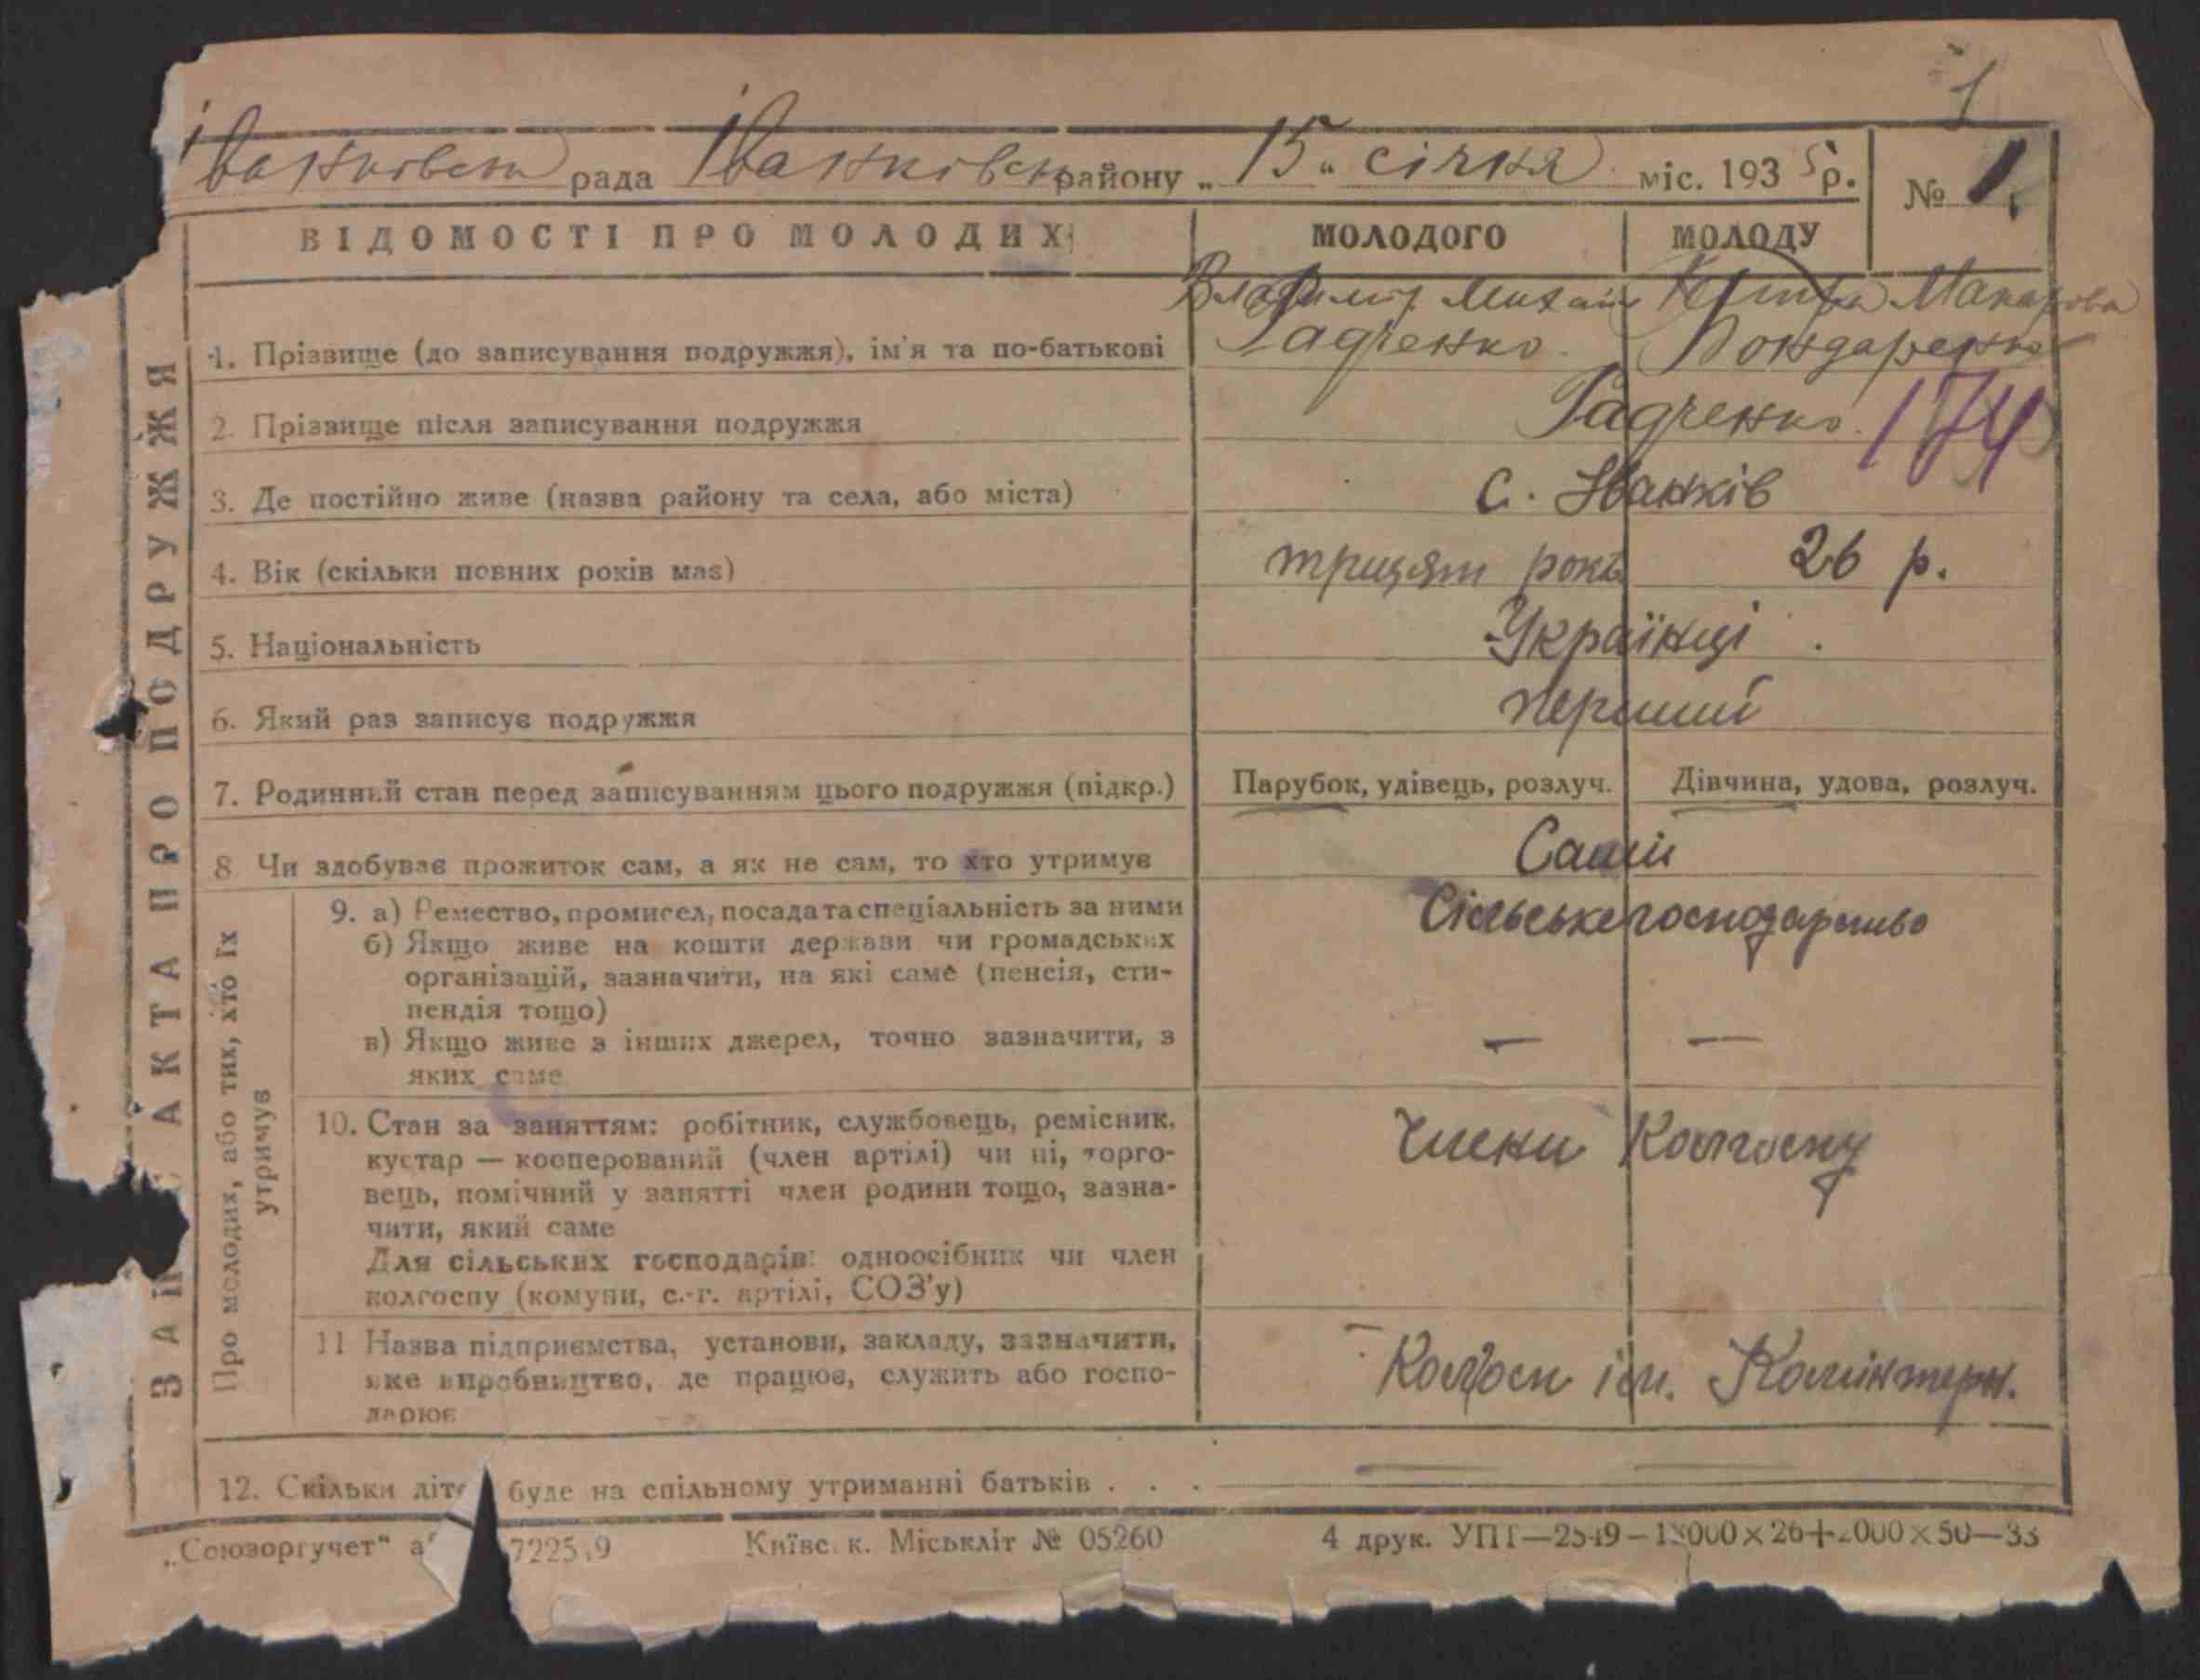 1
Іванковсь рада Іванковськ району „15“ січня міс. 1935 р. № 1.
ВІДОМОСТІ ПРО МОЛОДИХ МОЛОДОГО МОЛОДУ
Владимір Михай Макарова
1. Прізвище (до записування подружжя), ім'я та по-батькові Радченко Бондаренко
2. Прізвище після записування подружжя Радченко 174
3. Де постійно живе (назва району та села, або міста) с. Іванків
4. Вік (скільки повних років має) трицят років 26 р.
5. Національність Українці
6. Який раз записує подружжя перший
7. Родинний стан перед записуванням цього подружжя (підкр.) Парубок, удівець, розлуч. Дівчина, удова, розлуч.
8 Чи здобуває прожиток сам, а як не сам, то хто утримує Самі
9. а) Ремество, промисел, посада та спеціальність за ними Сільське господарство
б) Якщо живе на кошти держави чи громадських
організацій, зазначити, на які саме (пенсія, сти-
пендія тощо)
в) Якщо живе з інших джерел, точно зазначити, з — —
яких саме
10. Стан за заняттям: робітник, службовець, ремісник, Члени Колгоспу
кустар — кооперований (член артілі) чи ні, торго-
вець, помічний у занятті член родини тощо, зазна-
чити, який саме
Для сільських господарів: одноосібник чи член
колгоспу (комуни, с.-г. артілі, СОЗ'у)
11 Назва підприємства, установи, закладу, зазначити,
яке виробництво, де працює, служить або госпо- Колгосп ім. Комінтерн.
дарює
12. Скільки діте буде на спільному утриманні батьків . . .
ЗАП АКТА ПРО ПОДРУЖЖЯ
Про молодих, або тих, хто їх
утримує
„Союзоргучет“ 7225.9 Київськ. Міськліт № 05260 4 друк. УПП—2549—